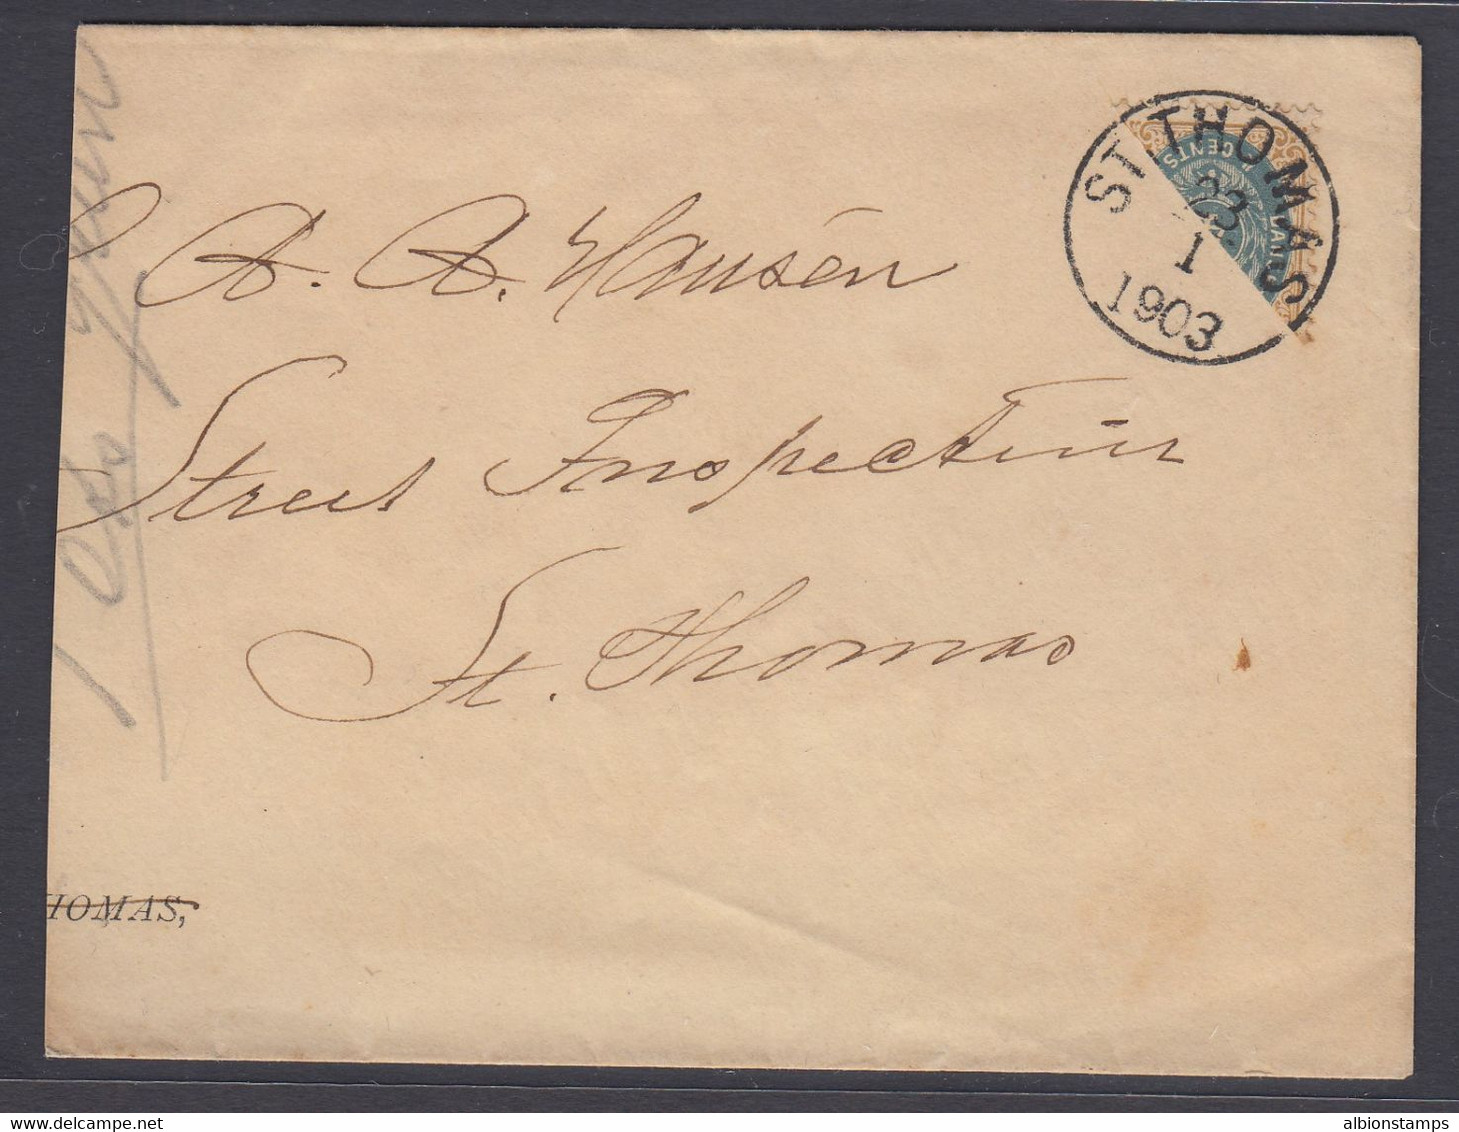 ST. THOMAS
23
1
1903
CENTS
A. A. Hausén
Street Inspecteur
St. Thomas
HOMAS,
www.delcampe.net
albionstamps